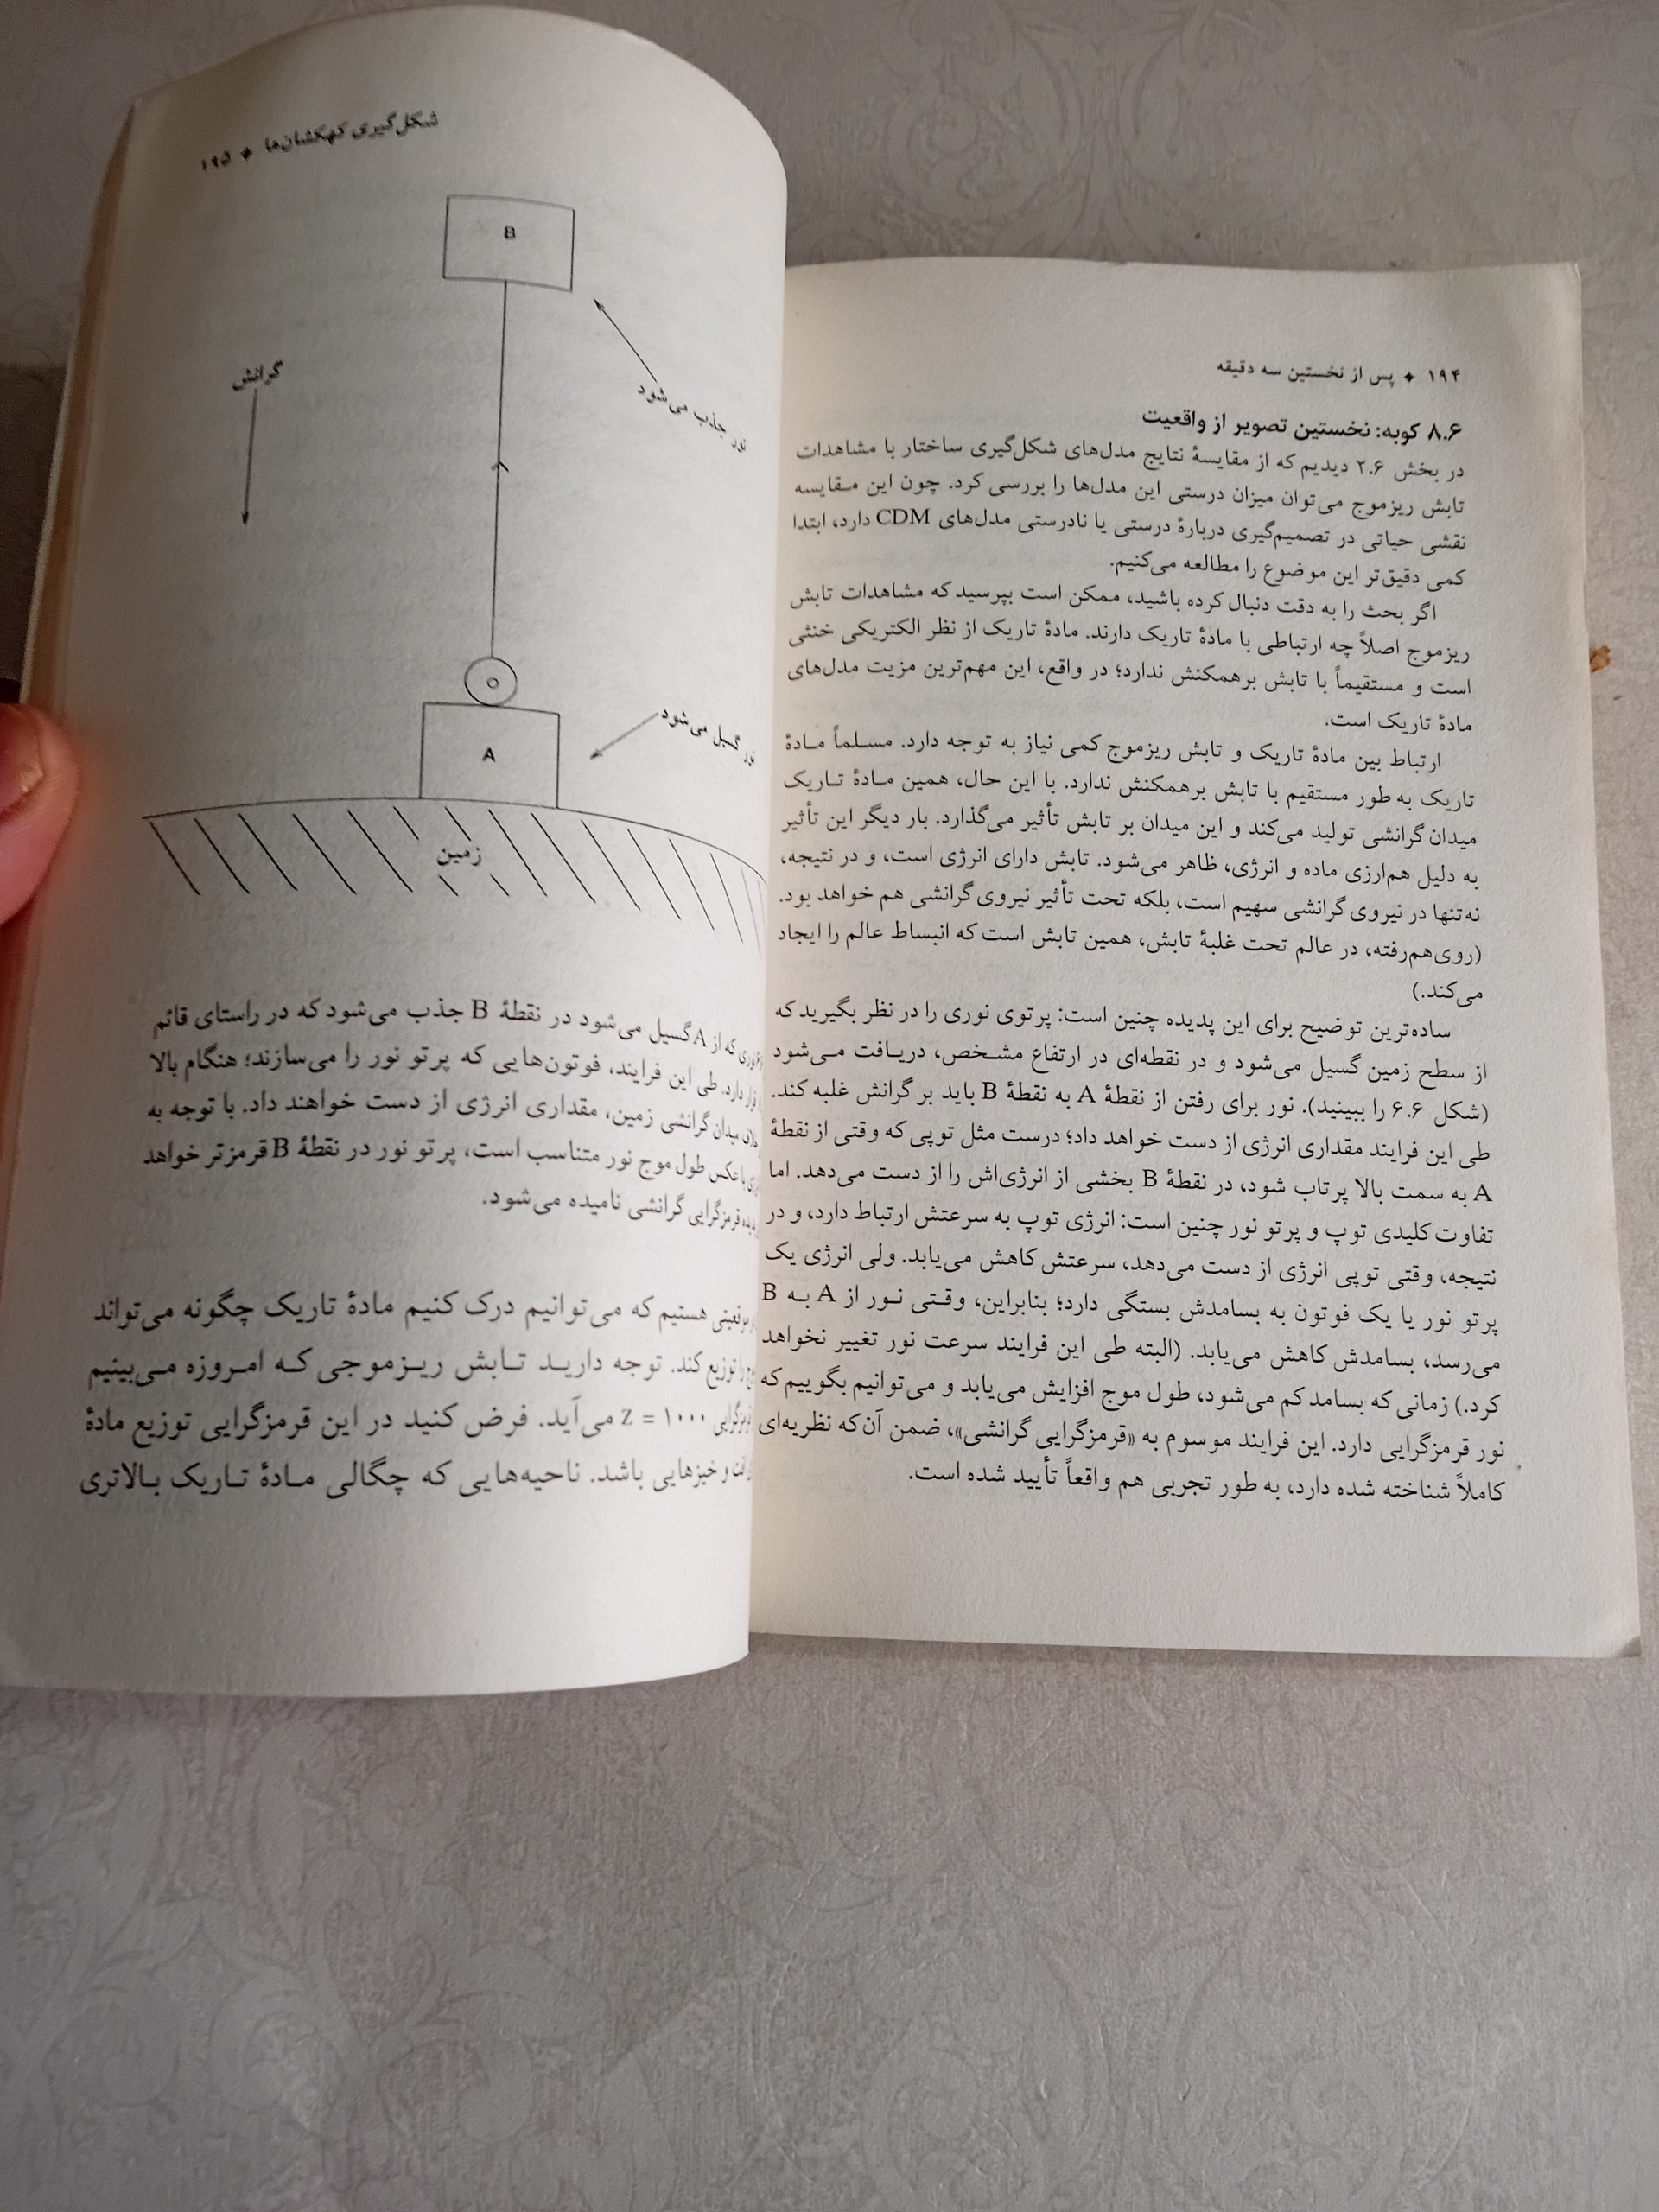 ۱۹۴ ✦ پس از نخستین سه دقیقه
۸.۶ کوبه: نخستین تصویر از واقعیت
در بخش ۲.۶ دیدیم که از مقایسهٔ نتایج مدل‌های شکل‌گیری ساختار با مشاهدات
تابش ریزموج می‌توان میزان درستی این مدل‌ها را بررسی کرد. چون این مقایسه
نقشی حیاتی در تصمیم‌گیری دربارهٔ درستی یا نادرستی مدل‌های CDM دارد، ابتدا
کمی دقیق‌تر این موضوع را مطالعه می‌کنیم.
اگر بحث را به دقت دنبال کرده باشید، ممکن است بپرسید که مشاهدات تابش
ریزموج اصلاً چه ارتباطی با مادهٔ تاریک دارند. مادهٔ تاریک از نظر الکتریکی خنثی
است و مستقیماً با تابش برهمکنش ندارد؛ در واقع، این مهم‌ترین مزیت مدل‌های
مادهٔ تاریک است.
ارتباط بین مادهٔ تاریک و تابش ریزموج کمی نیاز به توجه دارد. مسلماً مادهٔ
تاریک به طور مستقیم با تابش برهمکنش ندارد. با این حال، همین مادهٔ تاریک
میدان گرانشی تولید می‌کند و این میدان بر تابش تأثیر می‌گذارد. بار دیگر این تأثیر
به دلیل هم‌ارزی ماده و انرژی، ظاهر می‌شود. تابش دارای انرژی است، و در نتیجه،
نه‌تنها در نیروی گرانشی سهیم است، بلکه تحت تأثیر نیروی گرانشی هم خواهد بود.
(روی‌هم‌رفته، در عالم تحت غلبهٔ تابش، همین تابش است که انبساط عالم را ایجاد
می‌کند.)
ساده‌ترین توضیح برای این پدیده چنین است: پرتوی نوری را در نظر بگیرید که
از سطح زمین گسیل می‌شود و در نقطه‌ای در ارتفاع مشخص، دریافت می‌شود
(شکل ۶.۶ را ببینید). نور برای رفتن از نقطهٔ A به نقطهٔ B باید بر گرانش غلبه کند.
طی این فرایند مقداری انرژی از دست خواهد داد؛ درست مثل توپی که وقتی از نقطهٔ
A به سمت بالا پرتاب شود، در نقطهٔ B بخشی از انرژی‌اش را از دست می‌دهد. اما
تفاوت کلیدی توپ و پرتو نور چنین است: انرژی توپ به سرعتش ارتباط دارد، و در
نتیجه، وقتی توپی انرژی از دست می‌دهد، سرعتش کاهش می‌یابد. ولی انرژی یک
پرتو نور یا یک فوتون به بسامدش بستگی دارد؛ بنابراین، وقتی نور از A به B
می‌رسد، بسامدش کاهش می‌یابد. (البته طی این فرایند سرعت نور تغییر نخواهد
کرد.) زمانی که بسامد کم می‌شود، طول موج افزایش می‌یابد و می‌توانیم بگوییم که
نور قرمزگرایی دارد. این فرایند موسوم به «قرمزگرایی گرانشی»، ضمن آن‌که نظریه‌ای
کاملاً شناخته شده دارد، به طور تجربی هم واقعاً تأیید شده است.
شکل‌گیری کهکشان‌ها ✦ ۱۹۵
B
نور جذب می‌شود
گرانش
نور گسیل می‌شود
A
زمین
که از A گسیل می‌شود در نقطهٔ B جذب می‌شود که در راستای قائم
دارد. طی این فرایند، فوتون‌هایی که پرتو نور را می‌سازند؛ هنگام بالا
میدان گرانشی زمین، مقداری انرژی از دست خواهند داد. با توجه به
با عکس طول موج نور متناسب است، پرتو نور در نقطهٔ B قرمزتر خواهد
قرمزگرایی گرانشی نامیده می‌شود.
هستیم که می‌توانیم درک کنیم مادهٔ تاریک چگونه می‌تواند
را توزیع کند. توجه دارید تابش ریزموجی که امروزه می‌بینیم
z = ۱۰۰۰ می‌آید. فرض کنید در این قرمزگرایی توزیع مادهٔ
و خیزهایی باشد. ناحیه‌هایی که چگالی مادهٔ تاریک بالاتری